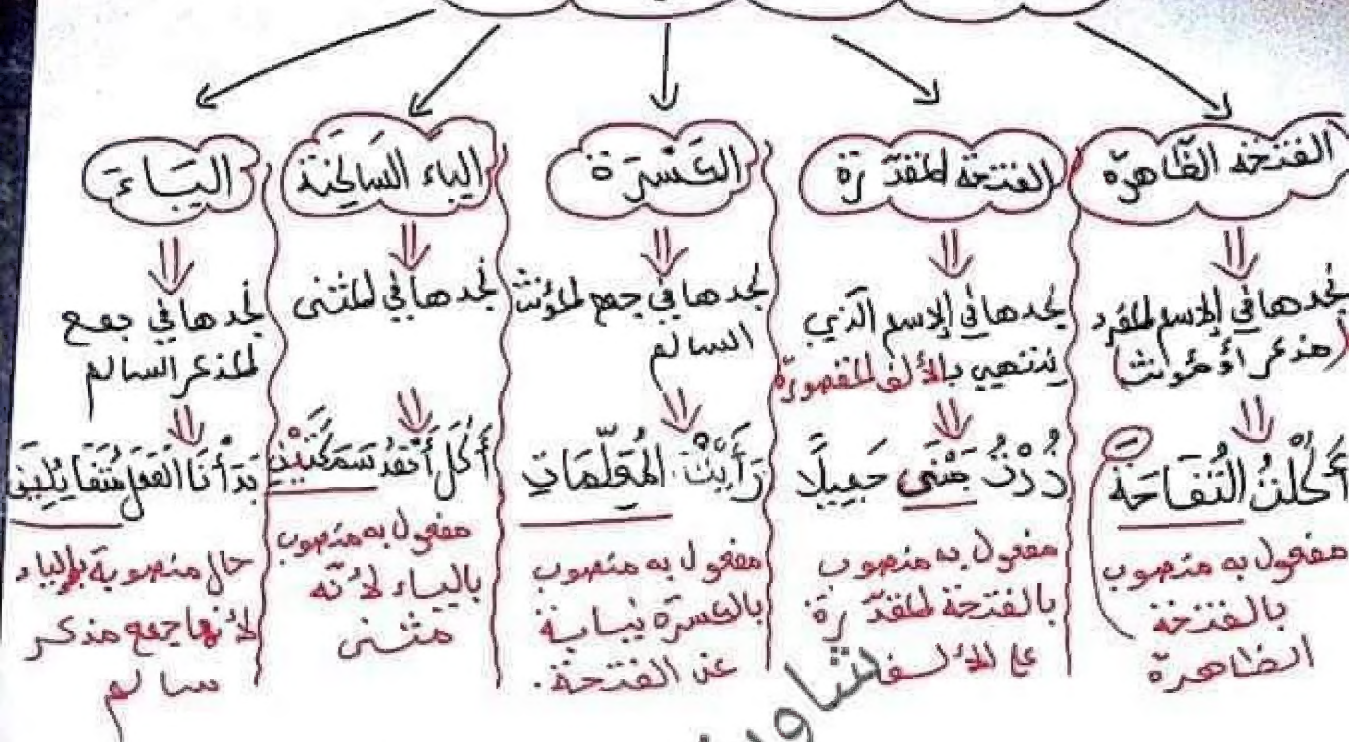 الفتحة الظّاهرة
نجدها في الاسم المفرد
(مذكر أو مؤنث)
أَكَلْتُ التُفَاحَةَ
مفعول به منصوب
بالفتحة
الظاهرة
الفتحة المقدّرة
نجدها في الاسم الذي
ينتهي بالألف المقصورة
زُرْتُ مَبْنَى جَمِيلًا
مفعول به منصوب
بالفتحة المقدّرة
على الألف
الكَسْرَة
نجدها في جمع المؤنث
السالم
رَأَيْتُ المُعَلِّمَاتِ
مفعول به منصوب
بالكسرة نيابة
عن الفتحة.
الياء السَاكنة
نجدها في المثنى
أَكَلَ أَحْمَدُ سَمَكَتَيْنِ
مفعول به منصوب
بالياء لأنّه
مثنى
اليَاءَ
نجدها في جمع
المذكر السالم
بَدَأْنَا العَمَلَ مُتَفَائِلِينَ
حال منصوبة بالياء
لأنها جمع مذكر
سالم